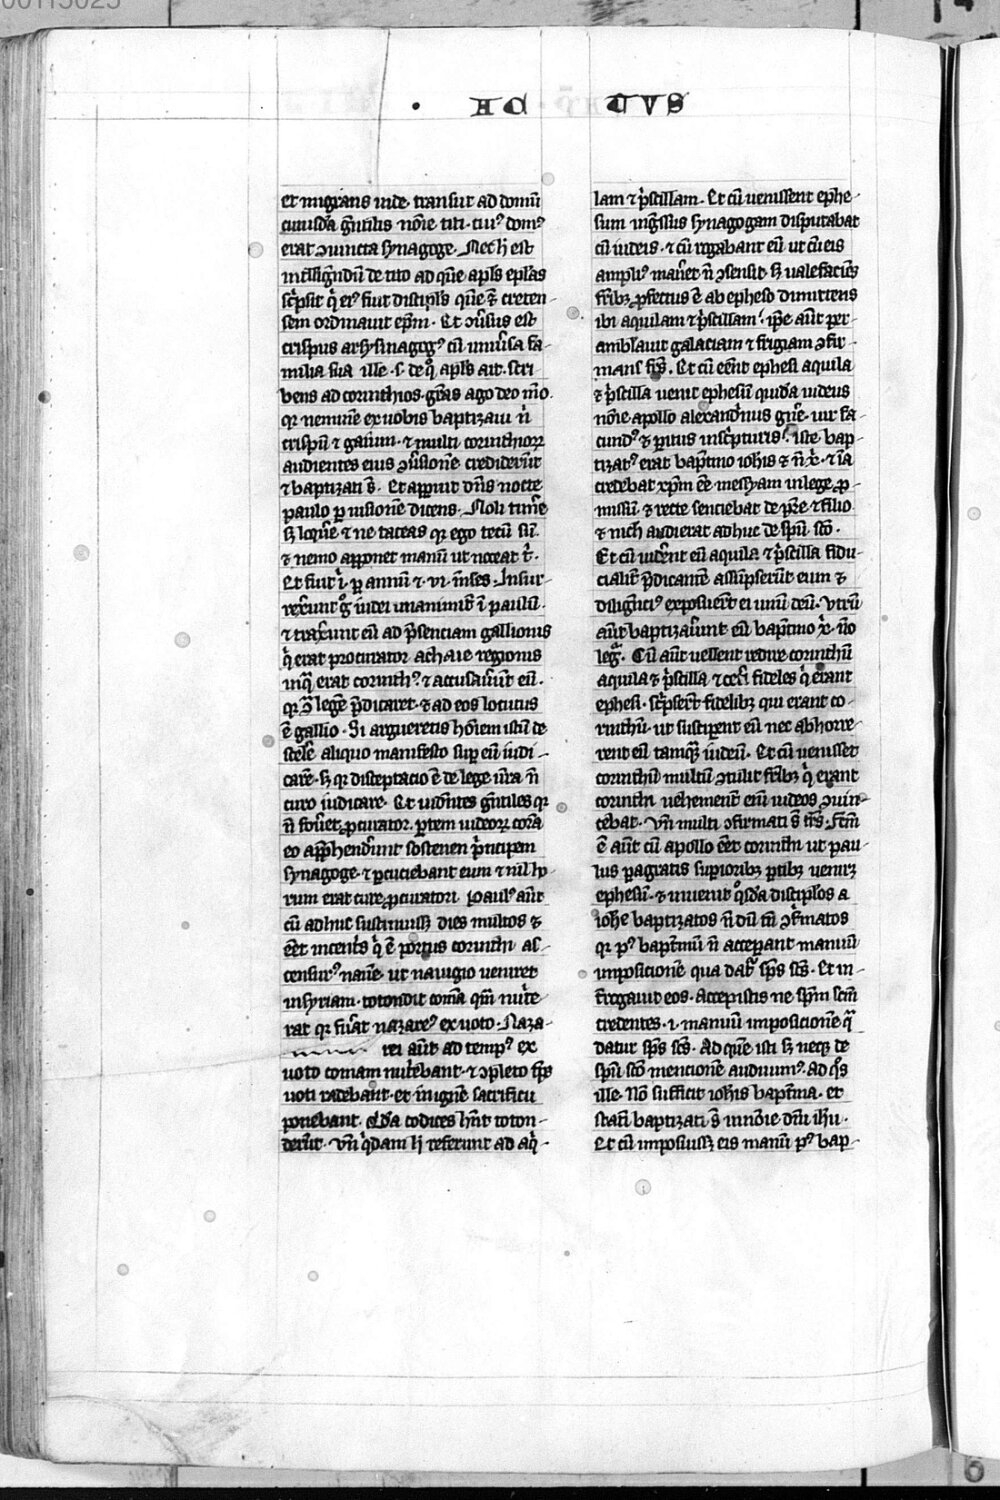 00113025
· AC TVS
et migrans inde transiit ad domū
cuiusdā gentilis nōie titi · cuiꝰ domꝰ
erat ↄiuncta synagoge · Nec h̄ est
intelligendū de tito ad quē apl's eplās
sc̄psit q̇ eiꝰ fuit discipl's quē ⁊ creten-
sem ordinauit ep̄m · Et ↄūsus est
crispus archisinagogꝰ cū uniūsa fa-
milia sua ille · s · de q° apl's ait · scri-
bens ad corinthios · gr̄as ago deo mō ·
qr neminē ex uobis baptizaui n̄
crispū ⁊ gaium · ⁊ multi corinthioꝝ
audientes eius ↄūsionē crediderūt
⁊ baptizati s̄ · Et apparuit dn̄s nocte
paulo ꝑ uisionē dicens · Noli timē
sꝫ loquē ⁊ ne taceas qr ego tecū sū ·
⁊ nemo apponet manū ut noceat t̄ ·
Et fuit i ꝑ annū ⁊ · vi · mēses · Insur-
rexerunt g° iudei unanimit̄ ī paulū ·
⁊ traxerunt eū ad p̄senciam gallionis
q̇ erat procurator achaie regionis
in q̄ erat corinthꝰ · ⁊ accusauerūt eū ·
qr ↄ̄ legē p̄dicaret · ⁊ ad eos locutus
ē gallio · Si argueretis hōiem istū de
scelē aliquo manifesto sup eū iudi-
carē · sꝫ qr disceptacio ē de lege ūra n̄
curo iudicare · Et uidentes gentiles qr
n̄ fouet ꝓcurator partem iudeoꝝ corā
eo apprehenderunt sostenen principem
synagoge · ⁊ ꝑcuciebant eum ⁊ nil hoꝝ
rum erat cure ꝓcuratori Paulꝰ aūt
cū adhuc sustinuissꝫ dies multos ⁊
eēt in cencris q̇ ē portus corinthi as-
censurꝰ nauē · ut nauigio ueniret
in syriam · totondit comā quā nut̄e-
rat qr fuerat nazareꝰ ex uoto · Naza-
rei aūt ad tempꝰ ex
uoto comam nut̄ebant · ⁊ ↄpleto tp̄e
uoti radebant · et in ignē sacrificii
ponebant · Quidā codices hn̄t toton-
derūt · Vn̄ quidam h̄ referunt ad aqͥ-
lam ⁊ p̄scillam · Et cū uenissent ephe-
sum ingressus synagogam disputabat
cū iudeis · ⁊ cū rogabant eū ut cū eis
ampliꝰ maneret n̄ ↄsensit · sꝫ ualefaciēs
fr̄ibꝫ ꝓfectus ē ab epheso dimittens
ibi aquilam ⁊ p̄scillam · ip̄e aūt per-
ambulauit galaciam ⁊ frigiam ↄfir-
mans fr̄s · Et cū eēnt ephesi aquila
⁊ p̄scilla uenit ephesū quidā iudeus
nōie apollo alexandrinus gn̄e · uir fa-
cundꝰ ⁊ ꝑitus in sc̄pturis · iste bap-
tizatꝰ erat bapt̄mo ioh̄is ⁊ n̄ x̄ · ⁊ iā
credebat xp̄m eē messyam in lege ꝓ-
missū · ⁊ recte senciebat de pr̄e ⁊ filio
⁊ nich audierat adhuc de sp̄u sc̄o ·
Et cū uiderent eū aquila ⁊ p̄scilla fidu-
cialit̄ p̄dicantē assūpserūt eum ⁊
diligenciꝰ exposuerūt ei unū deū · Vtrū
aūt baptizauerunt eū bapt̄mo x̄ · nō
legͥ̄ · Cū aūt uellent redire corinthū
aquila ⁊ p̄scilla ⁊ cet̄i fideles q̇ erant
ephesi · sc̄pserūt fidelibꝫ qui erant co-
rinthi · ut susciperent eū nec abhorre-
rent eū tamqꝫ iudeū · Et cū uenisset
corinthū multū ↄtulit fr̄ibꝫ q̇ erant
corinthi uehement̄ enī iudeos ↄuin-
cebat · Vn̄ multi ↄfirmati s̄ fr̄s · Fc̄m
ē aūt cū apollo eēt corinthi ut pau-
lus ꝑagratis superioribꝫ partibꝫ uenirꝫ
ephesū · ⁊ inuenit quosdā discipulos a
ioh̄e baptizatos n̄ dū tn̄ ↄfirmatos
qr pꝰ bapt̄mū n̄ acceperant manuū
imposicionē qua dat̄ sp̄s sc̄s · Et in-
terrogauit eos · Accepistis ne sp̄m sc̄m
credentes · i · manuū imposicionē qͣ
datur sp̄s sc̄s · Ad quē isti sꝫ neqꝫ de
sp̄u sc̄o mencionē audiuimꝰ · ad quos
ille · Nō sufficit ioh̄is bapt̄ma · et
statī baptizati s̄ in nōie dn̄i ih̄u ·
Et cū imposuissꝫ eis manū pꝰ bap-